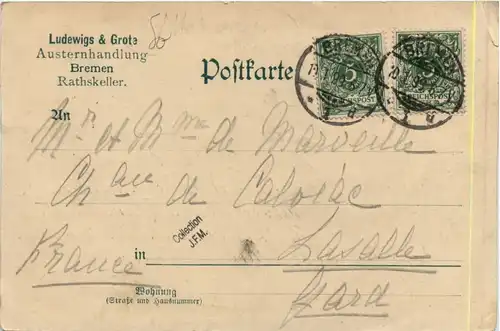 Ludewigs & Grote
Austernhandlung
Bremen
Rathskeller.
Postkarte
BREMEN
BREMEN
5
REICHSPOST
An
Mr et Bnne de Marveille
Chau de Calviac
Collection
J.F.M.
in Lasalle
France
Gard
Wohnung
(Straße und Hausnummer)